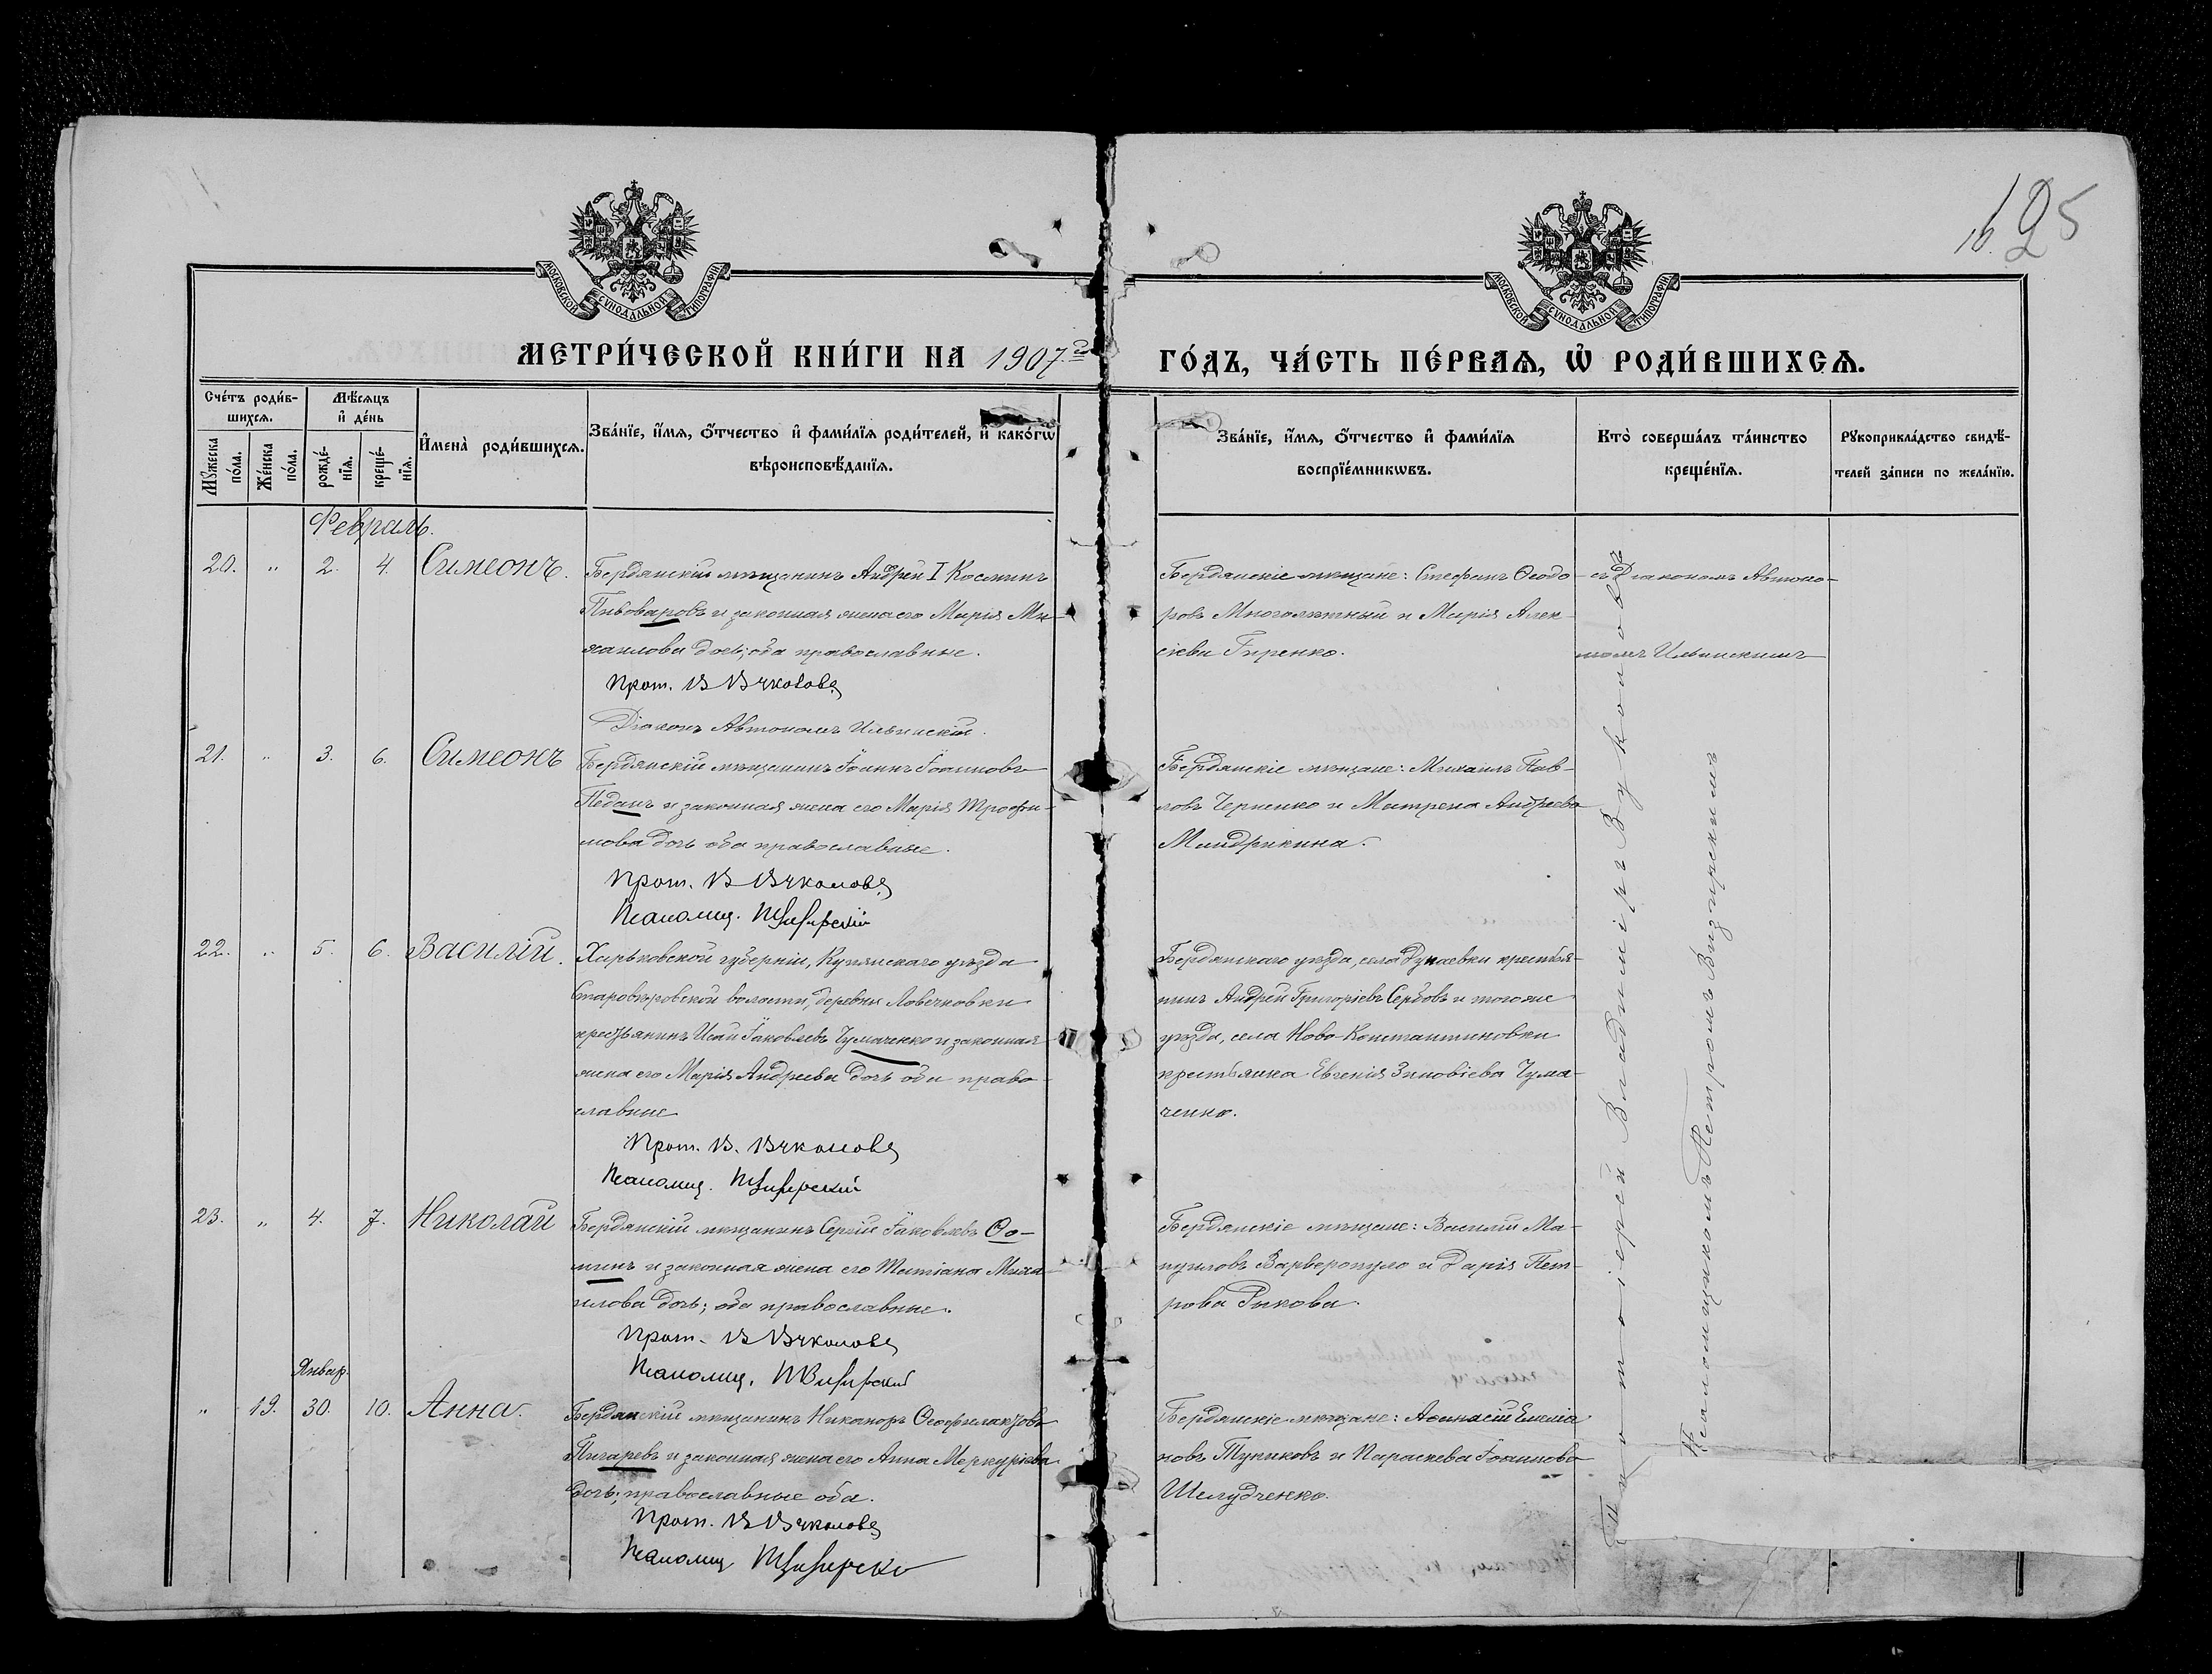 16. 25
МОСКОВСКОЙ СУНОДАЛЬНОЙ ТИПОГРАФІИ
МОСКОВСКОЙ СУНОДАЛЬНОЙ ТИПОГРАФІИ
МЕТРИ́ЧЕСКОЙ КНИ́ГИ НА 1907й
ГО́ДЪ, ЧА́СТЬ ПЕ́РВАѦ, Ѡ҆ РОДИ́ВШИХСѦ.
Сче́тъ роди́в-
шихсѧ.
Мѣ́сяцъ
и҆ де́нь
Мꙋ́жеска по́ла.
Же́нска по́ла.
рожде́-
нїѧ.
креще́-
нїѧ.
И҆мена̀ роди́вшихсѧ.
Зва́нїе, и҆́мѧ, ѻ҆́тчество и҆ фами́лїѧ роди́телей, и҆ како́гѡ
вѣроисповѣ́данїѧ.
Зва́нїе, и҆́мѧ, ѻ҆́тчество и҆ фами́лїѧ
воспрїе́мникѡвъ.
Кто̀ соверша́лъ та́инство
креще́нїѧ.
Рꙋкоприкла́дство свидѣ́-
телей за́писи по жела́нїю.
Февраль.
20. " 2. 4. Симеонъ.
Бердянскій мѣщанинъ Андрей I Косминъ
Пивоваровъ и законная жена его Марія Ми-
хаилова дочь; оба православные.
Прот. В Вуколовъ
Діаконъ Автономъ Ильинскій.
Бердянскіе мѣщане: Стефанъ Ѳеодо-
ровъ Многолѣтный и Марія Алек-
сіева Гиренко.
съ Діакономъ Автоно-
момъ Ильинскимъ
21. " 3. 6. Симеонъ
Бердянскій мѣщанинъ Іоаннъ Іоанновъ
Педанъ и законная жена его Марія Трофи-
мова дочь оба православные.
Прот. В Вуколовъ
Псаломщ.
Бердянскіе мѣщане: Михаилъ Пав-
ловъ Черненко и Матрена Андреева
Мандрикина.
22. " 5. 6. Василій.
Харьковской губерніи, Купянскаго уѣзда
Старовѣровской волости, деревни
крестьянинъ Исай Іаковлевъ Чумаченко и законная
жена его Марія Андреева дочь оба право-
славные
Прот. В. Вуколовъ
Псаломщ.
Бердянскаго уѣзда, села Дунаевки крестья-
нинъ Андрей Григоріевъ Сербовъ и того же
уѣзда, села Ново-Константиновки
крестьянка Евгенія Зиновіева Чума-
ченко.
23. " 4. 7. Николай
Бердянскій мѣщанинъ Сергій Іаковлевъ Ѳо-
минъ и законная жена его Татіана Миха-
илова дочь; оба православные.
Прот. В Вуколовъ
Псаломщ.
Бердянскіе мѣщане: Василій Ма-
нуиловъ Варверопуло и Дарія Пет-
рова Рыкова.
Январ.
" 19. 30. 10. Анна.
Бердянскій мѣщанинъ Никаноръ Ѳеофилактовъ
Пигаревъ и законная жена его Анна Меркуріева
дочь; православные оба.
Прот. В Вуколовъ
Псаломщ
Бердянскіе мѣщане: Аѳанасій Емелiа
новъ Тупиковъ и Параскева Іоаннова
Шелудченко.
Протоіерей Владиміръ Вуколовъ
Псаломщикомъ Петромъ